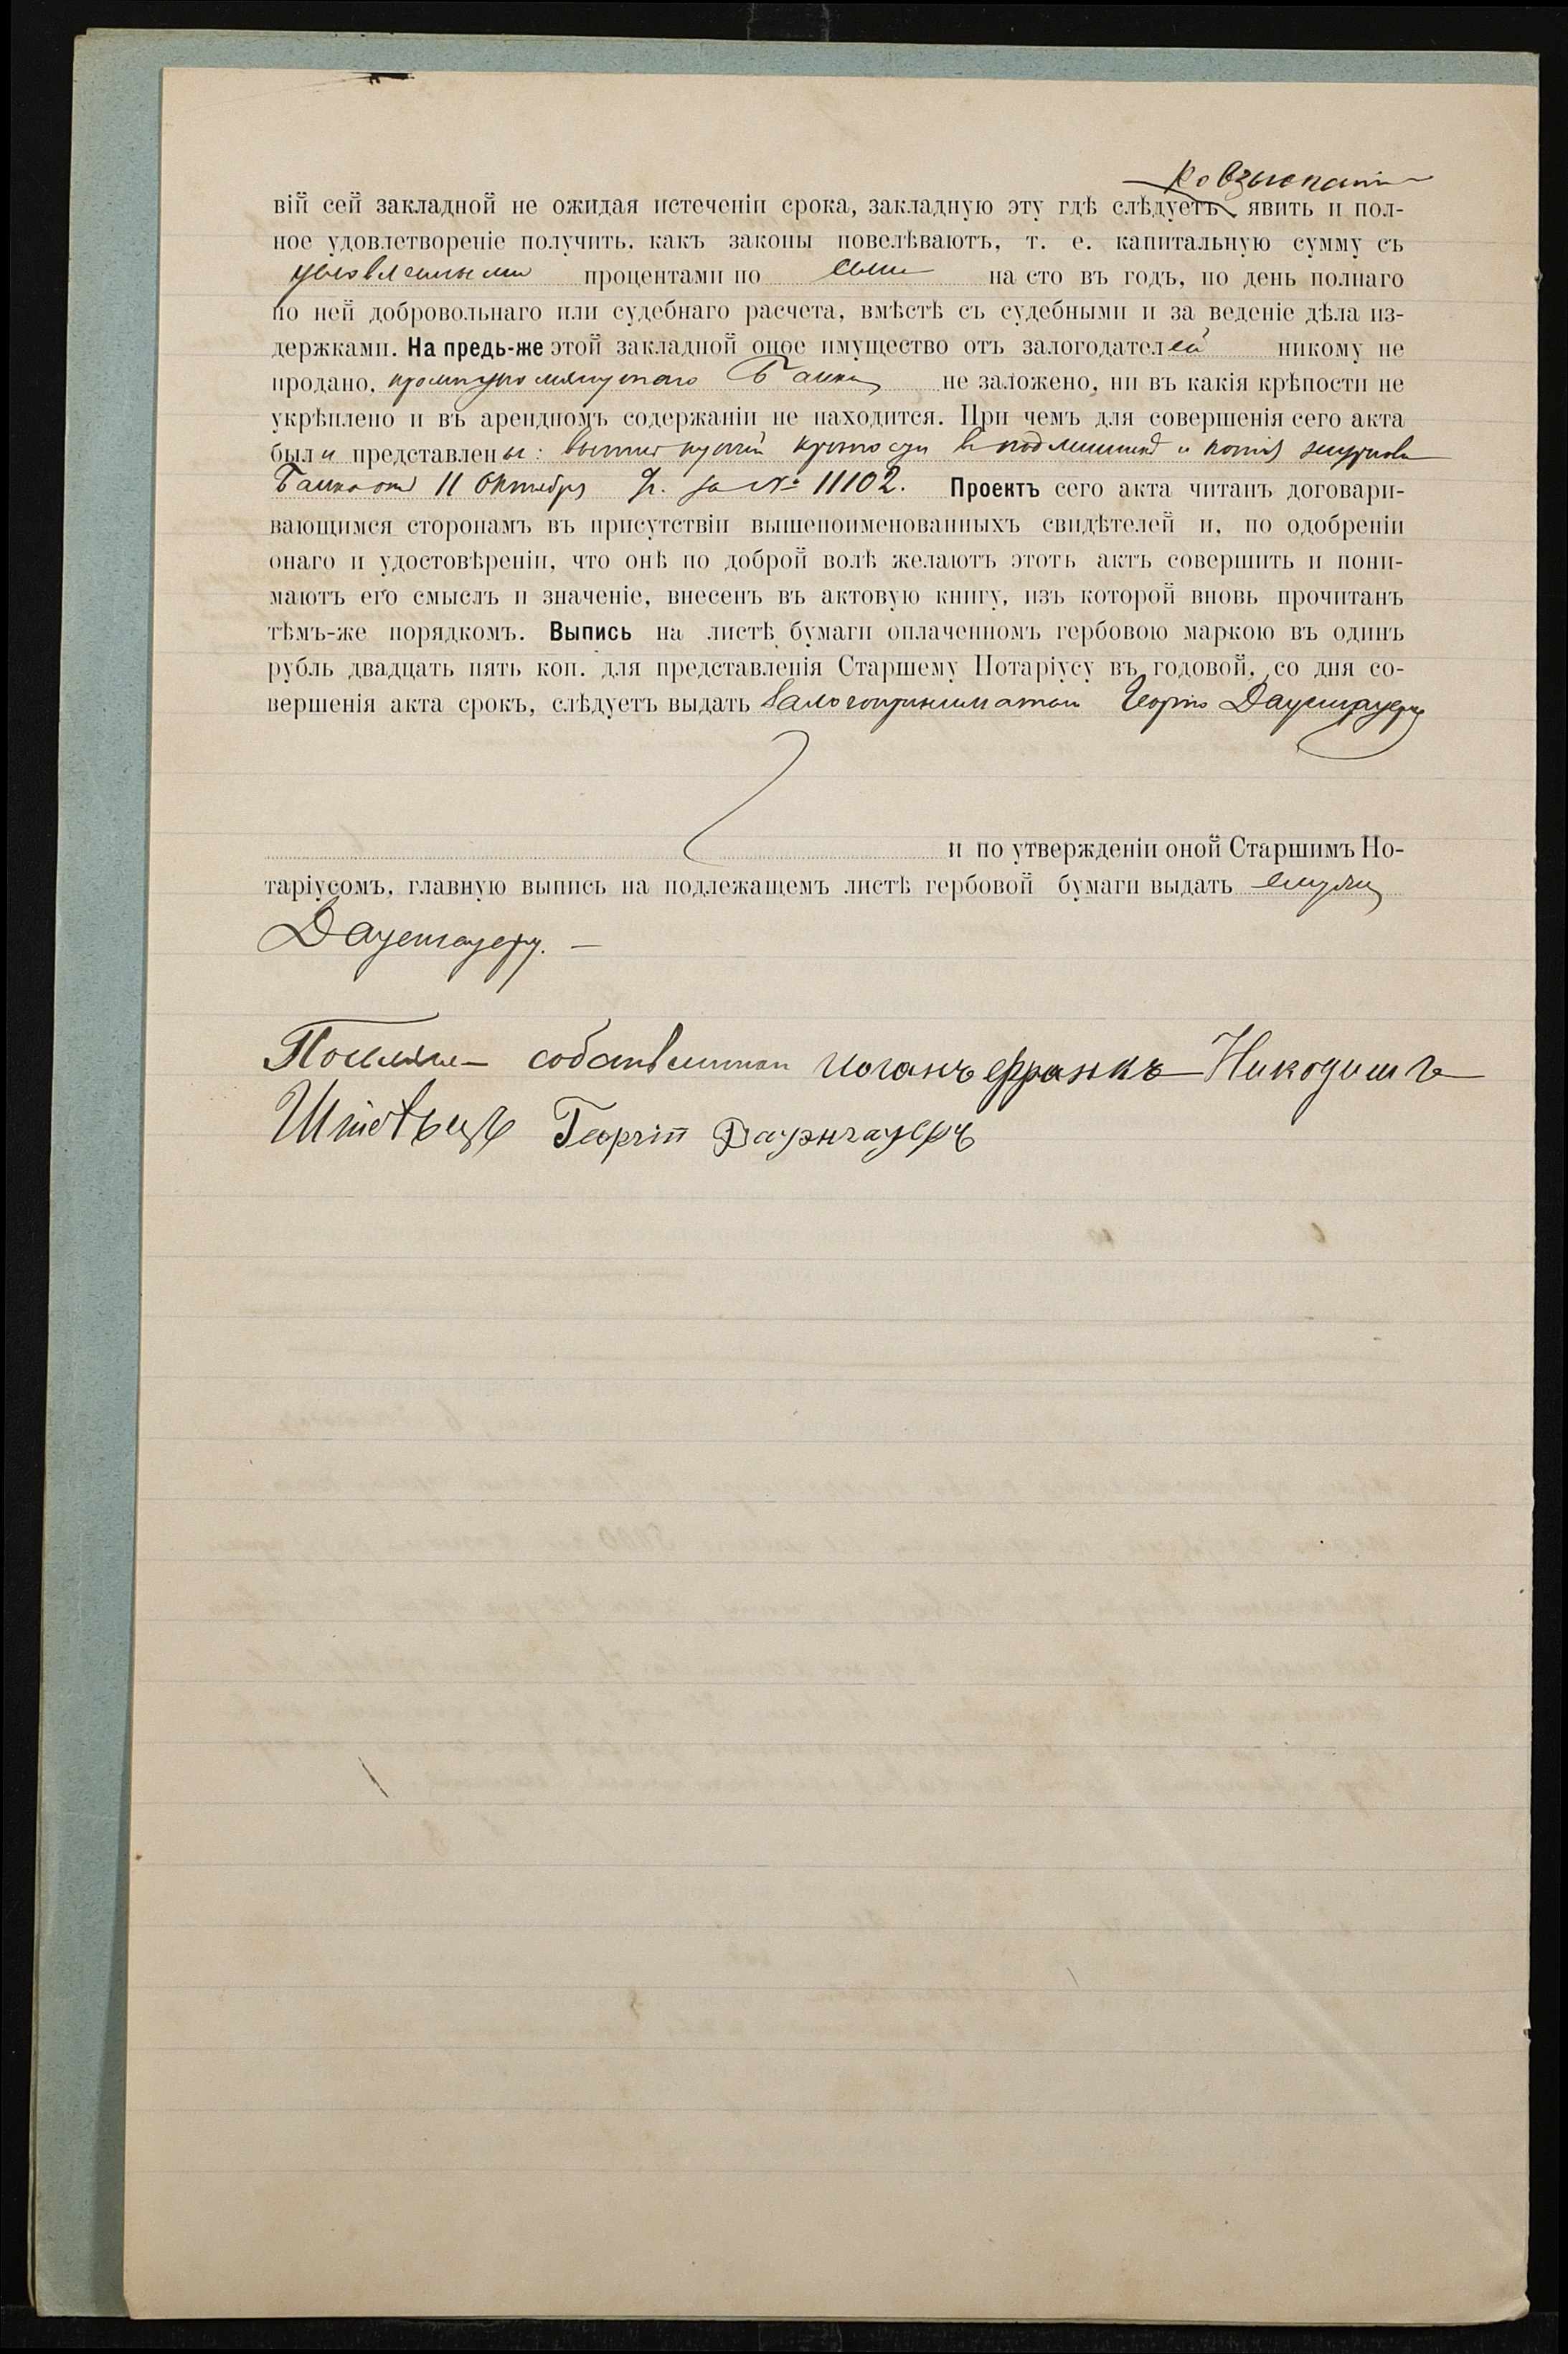 ко взысканію
вій сей закладной не ожидая истеченіи срока, закладную эту гдѣ слѣдуетъ явить и пол-
ное удовлетвореніе получить, какъ законы повелѣваютъ, т. е. капитальную сумму съ
условленными процентами по семи на сто въ годъ, по день полнаго
по ней добровольнаго или судебнаго расчета, вмѣстѣ съ судебными и за веденіе дѣла из-
держками. На предь-же этой закладной оное имущество отъ залогодателей никому не
продано, кромѣ упомянутаго Банка, не заложено, ни въ какія крѣпости не
укрѣплено и въ арендномъ содержаніи не находится. При чемъ для совершенія сего акта
были представлены: выпись купчей крѣпости въ подлинникѣ и копія
Банка отъ 11 Октября за № 11102. Проектъ сего акта читанъ договари-
вающимся сторонамъ въ присутствіи вышепоименованныхъ свидѣтелей и, по одобреніи
онаго и удостовѣреніи, что онѣ по доброй волѣ желаютъ этотъ актъ совершить и пони-
маютъ его смыслъ и значеніе, внесенъ въ актовую книгу, изъ которой вновь прочитанъ
тѣмъ-же порядкомъ. Выпись на листѣ бумаги оплаченномъ гербовою маркою въ одинъ
рубль двадцать пять коп. для представленія Старшему Нотаріусу въ годовой, со дня со-
вершенія акта срокъ, слѣдуетъ выдать Залогопринимателю Георгію Даувгауеру
и по утвержденіи оной Старшимъ Но-
таріусомъ, главную выпись на подлежащемъ листѣ гербовой бумаги выдать ему же
Даувгауеру. —
Поселяне собственники Иоганъ Франкъ Никодимъ
Георгій